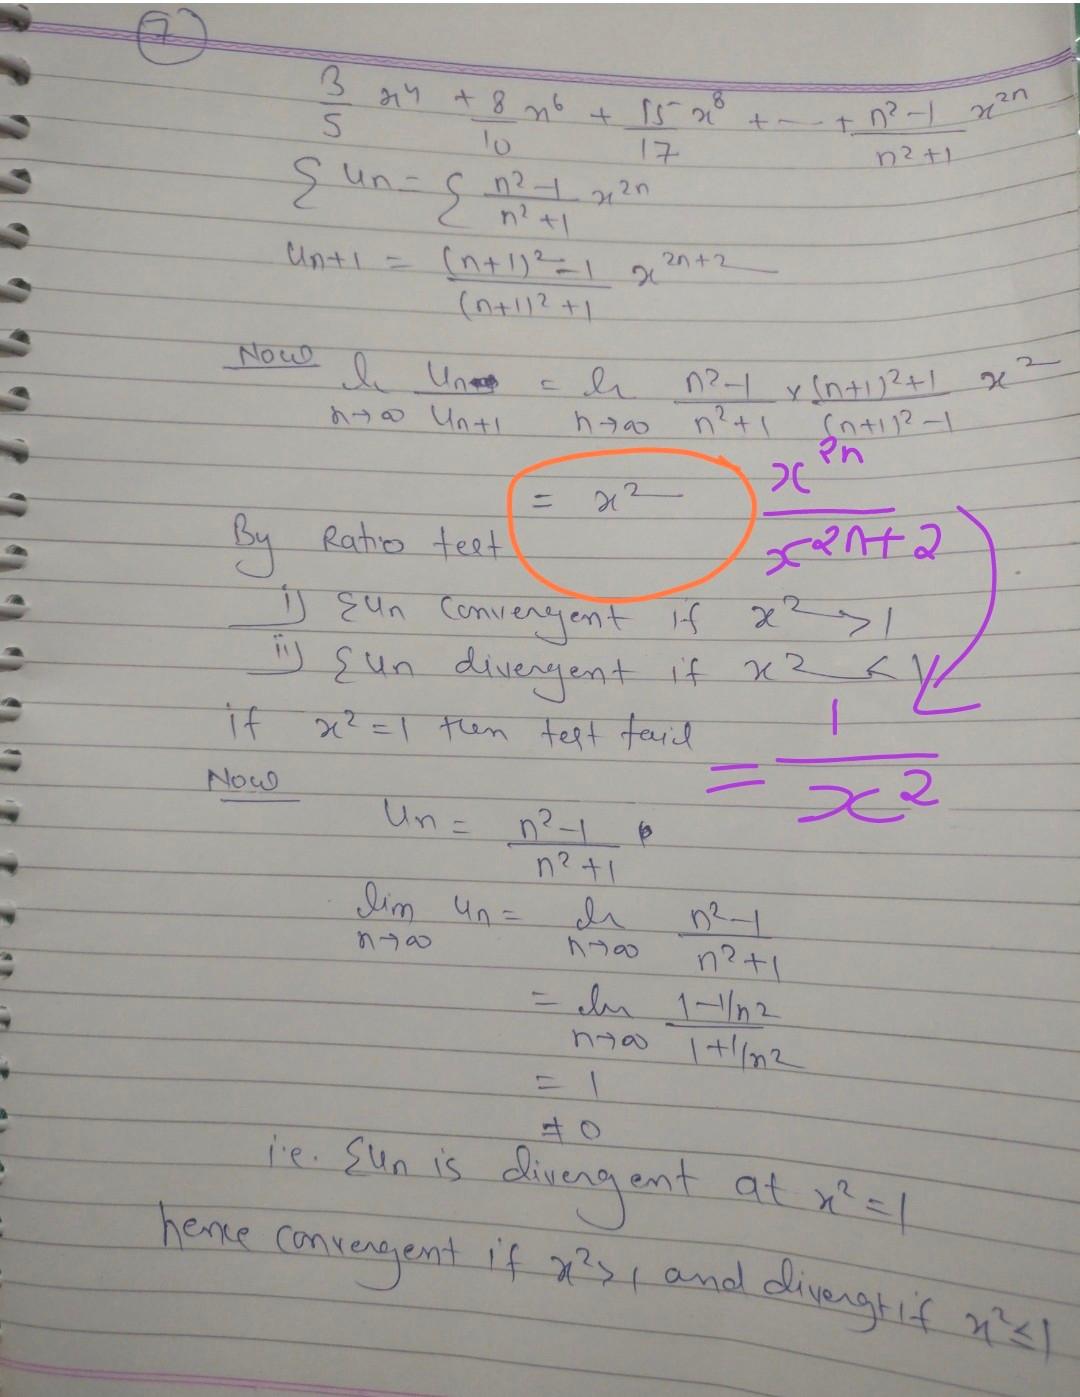 7
3/5 x⁴ + 8/10 x⁶ + 15/17 x⁸ + --- + n²-1/n²+1 x²ⁿ
Σ un = Σ n²-1/n²+1 x²ⁿ
Un+1 = (n+1)²-1/(n+1)²+1 x²ⁿ⁺²
Now li n→∞ Un/Un+1 = li n→∞ n²-1/n²+1 × (n+1)²+1/(n+1)²-1 x²
= x²
x²ⁿ/x²ⁿ⁺²
By Ratio test
i) Σun convergent if x² > 1
ii) Σun divergent if x² < 1
if x² = 1 then test faid
= 1/x²
Now
Un = n²-1/n²+1
lim n→∞ un = li n→∞ n²-1/n²+1
= lim n→∞ 1-1/n²/1+1/n²
= 1
≠ 0
i.e. Σun is divergent at x² = 1
hence convergent if x²>1 and divergt if x²≤1